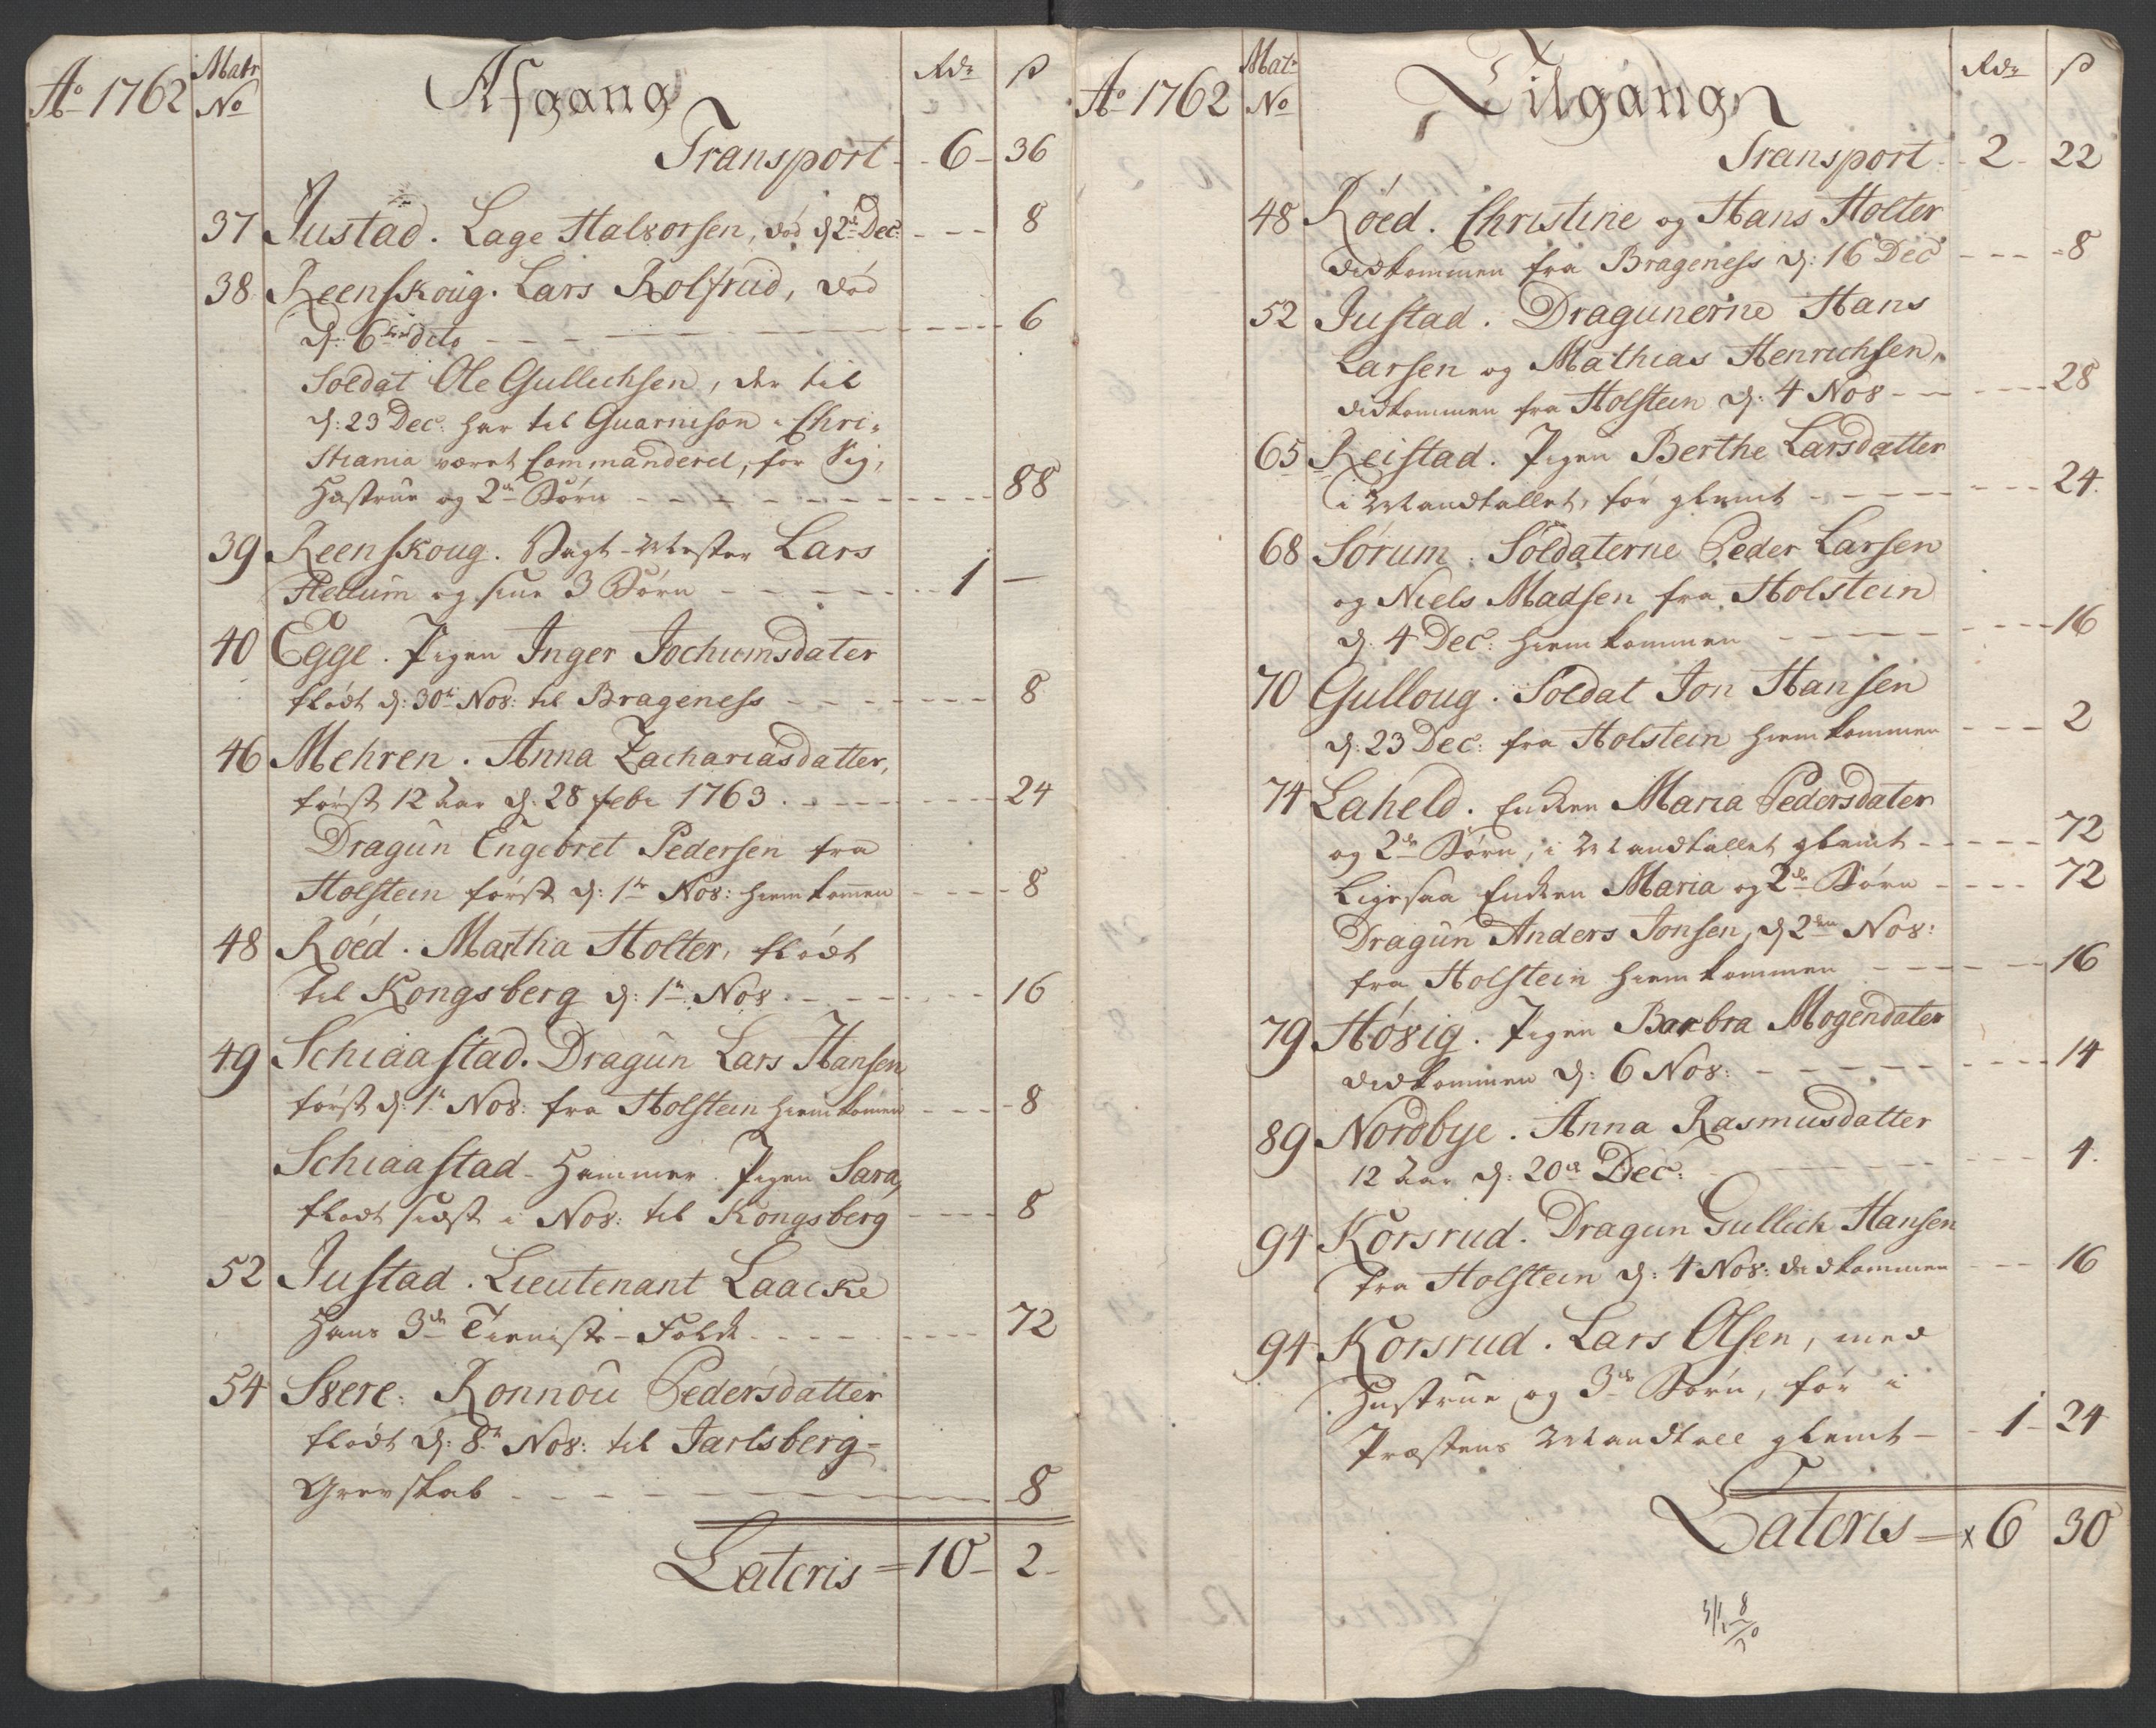 Ao 1762
Matr No
Afgang
Rdr ß
Transport - 6 - 36
37 Justad. Lage Halvorsen, död d 2de Dec: - - - 8
38 Reenskoug. Lars Rolfrud, död
d: 6te dito - - - 6
Soldat Ole Gullichsen, der til
d: 23 Dec: har til Guarnison i Chri-
stiania været Commanderet, for Sig,
Hustrue og 2de Börn - - - 88
39 Reenskoug. Vagt-Mester Lars
Hellum og sine 3 Börn - - - 1 -
40 Egge. Pigen Inger Jochumsdater
flödt d: 30te Nov: til Brageness - - - 8
46 Mehren. Anna Zachariasdatter,
först 12 Aar d: 28 febr 1763 - - - 24
Dragun Engebret Pedersen fra
Holstein först d: 1te Nov: hiemkommen - - - 8
48 Röed. Martha Holter, flödt
til Kongsberg d: 1te Nov - - - 16
49 Schiaastad. Dragun Lars Hansen
först d: 1te Nov: fra Holstein hiemkommen - - - 8
Schiaastad-Hammer. Pigen Sara,
flödt sidst i Nov: til Kongsberg - - - 8
52 Justad. Lieutenant Laacke
Hans 3de Tieniste-Folk - - - 72
54 Svere: Ronnou Pedersdatter
flödt d: 8te Nov: til Jarlsberg-
Grevskab - - - 8
Lateris = 10 - 2 -
Ao 1762
Matr No
Tilgang
Rdr ß
Transport - 2 - 22
48 Röed. Christine og Hans Holter
didkommen fra Bragness d: 16 Dec - - - 8
52 Justad. Dragunerne Hans
Larsen og Mathias Henrichsen,
didkommen fra Holstein d: 4 Nov - - - 28
65 Reistad. Pigen Berthe Larsdatter
i Mandtallet, för glemt - - - 24
68 Sörum. Soldaterne Peder Larsen
og Niels Madsen fra Holstein
d: 4 Dec: hiemkommen - - - 16
70 Gulloug. Soldat Jon Hansen
d: 23 Dec: fra Holstein hiemkommen - - - 2
74 Laheld. Enken Maria Pedersdater
og 2de Börn, i Mandtallet glemt - - - 72
Ligesaa Enken Maria og 2de Börn - - - 72
Dragun Anders Jonsen, d 2den Nov:
fra Holstein hiemkommen - - - 16
79 Hövig. Pigen Barbra Mogendater
didkommen d: 6 Nov: - - - 14
89 Nordbye. Anna Rasmusdatter
12 Aar d: 20de Dec: - - - 4
94 Korsrud. Dragun Gullich Hansen
fra Holstein d: 4 Nov: didkommen - - - 16
94 Korsrud. Lars Olsen, med
Hustrue og 3de Börn, för i
Præstens Mandtall glemt - 1 - 24
Lateris = x 6 30